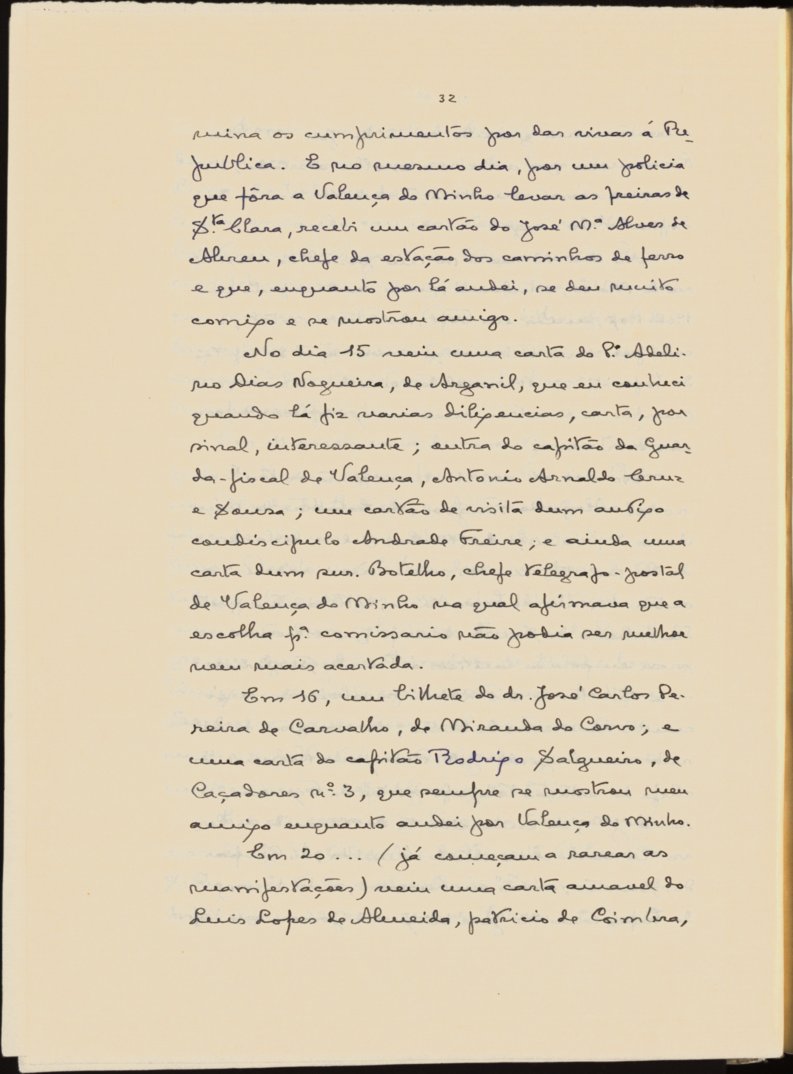 32
mina os cumprimentos por dar vivas á Re-
publica. E no mesmo dia, por um policia
que fôra a Valença do Minho levar as freiras de
S.ta Clara, recebi um cartão do José M.ª Alves de
Abreu, chefe da estação dos caminhos de ferro
e que, enquanto por lá andei, se deu muito
comigo e se mostrou amigo.
No dia 15 veiu uma carta do P.e Adeli-
no Dias Nogueira, de Arganil, que eu conheci
quando lá fiz varias diligencias, carta, por
sinal, interessante; outra do capitão da Guar-
da-fiscal de Valença, Antonio Arnaldo Cruz
e Sousa; um cartão de visita dum antigo
condiscipulo Andrade Freire; e ainda uma
carta dum sur. Botelho, chefe telegrafo-postal
de Valença do Minho na qual afirmava que a
escolha p.ª comissario não podia ser melhor
nem mais acertada.
Em 16, um bilhete do dr. José Carlos Pe-
reira de Carvalho, de Miranda do Corvo; e
uma carta do capitão Rodrigo Salgueiro, de
Caçadores n.º 3, que sempre se mostrou meu
amigo enquanto andei por Valença do Minho.
Em 20 ... (já começam a rarear as
manifestações) veiu uma carta amavel do
Luis Lopes de Almeida, patricio de Coimbra,